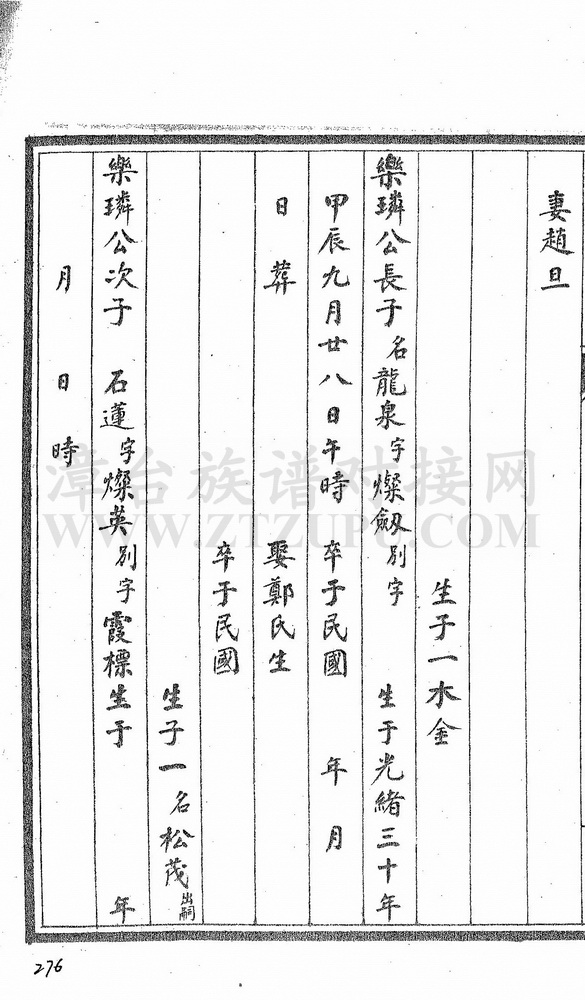 妻趙旦
生子一水金
樂璘公長子 名龍泉字燦劔別字 生于光緒三十年
甲辰九月廿八日午時 卒于民國 年 月
日 葬 娶鄭氏生
卒于民國
生子一名松茂出嗣
樂璘公次子 石蓮字燦英別字霞標生于 年
月 日 時
276
漳台族谱对接网
WWW.ZTZUPU.COM